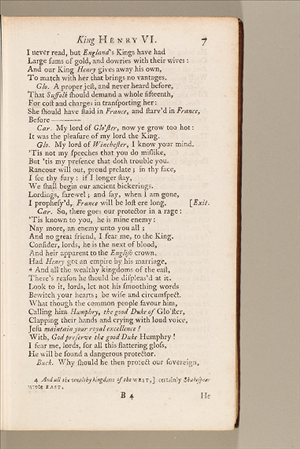 King HENRY VI. 7
I never read, but England's Kings have had
Large sums of gold, and dowries with their wives:
And our King Henry gives away his own,
To match with her that brings no vantages.
Glo. A proper jest, and never heard before,
That Suffolk should demand a whole fifteenth,
For cost and charges in transporting her:
She should have staid in France, and starv'd in France,
Before ———
Car. My lord of Glo'ster, now ye grow too hot:
It was the pleasure of my lord the King.
Glo. My lord of Winchester, I know your mind.
'Tis not my speeches that you do mislike,
But 'tis my presence that doth trouble you.
Rancour will out, proud prelate; in thy face,
I see thy fury: if I longer stay,
We shall begin our ancient bickerings.
Lordings, farewel; and say, when I am gone,
I prophesy'd, France will be lost ere long. [Exit.
Car. So, there goes our protector in a rage:
'Tis known to you, he is mine enemy:
Nay more, an enemy unto you all;
And no great friend, I fear me, to the King.
Consider, lords, he is the next of blood,
And heir apparent to the English crown.
Had Henry got an empire by his marriage,
* And all the wealthy kingdoms of the east,
There's reason he should be displeas'd at it.
Look to it, lords, let not his smoothing words
Bewitch your hearts; be wise and circumspect.
What though the common people favour him,
Calling him Humphry, the good Duke of Glo'ster,
Clapping their hands and crying with loud voice,
Jesu maintain your royal excellence!
With, God preserve the good Duke Humphry!
I fear me, lords, for all this flattering gloss,
He will be found a dangerous protector.
Buck. Why should he then protect our sovereign,
4 And all the wealthy kingdoms of the WEST,] certainly Shakespear
wrote EAST.
B 4 He